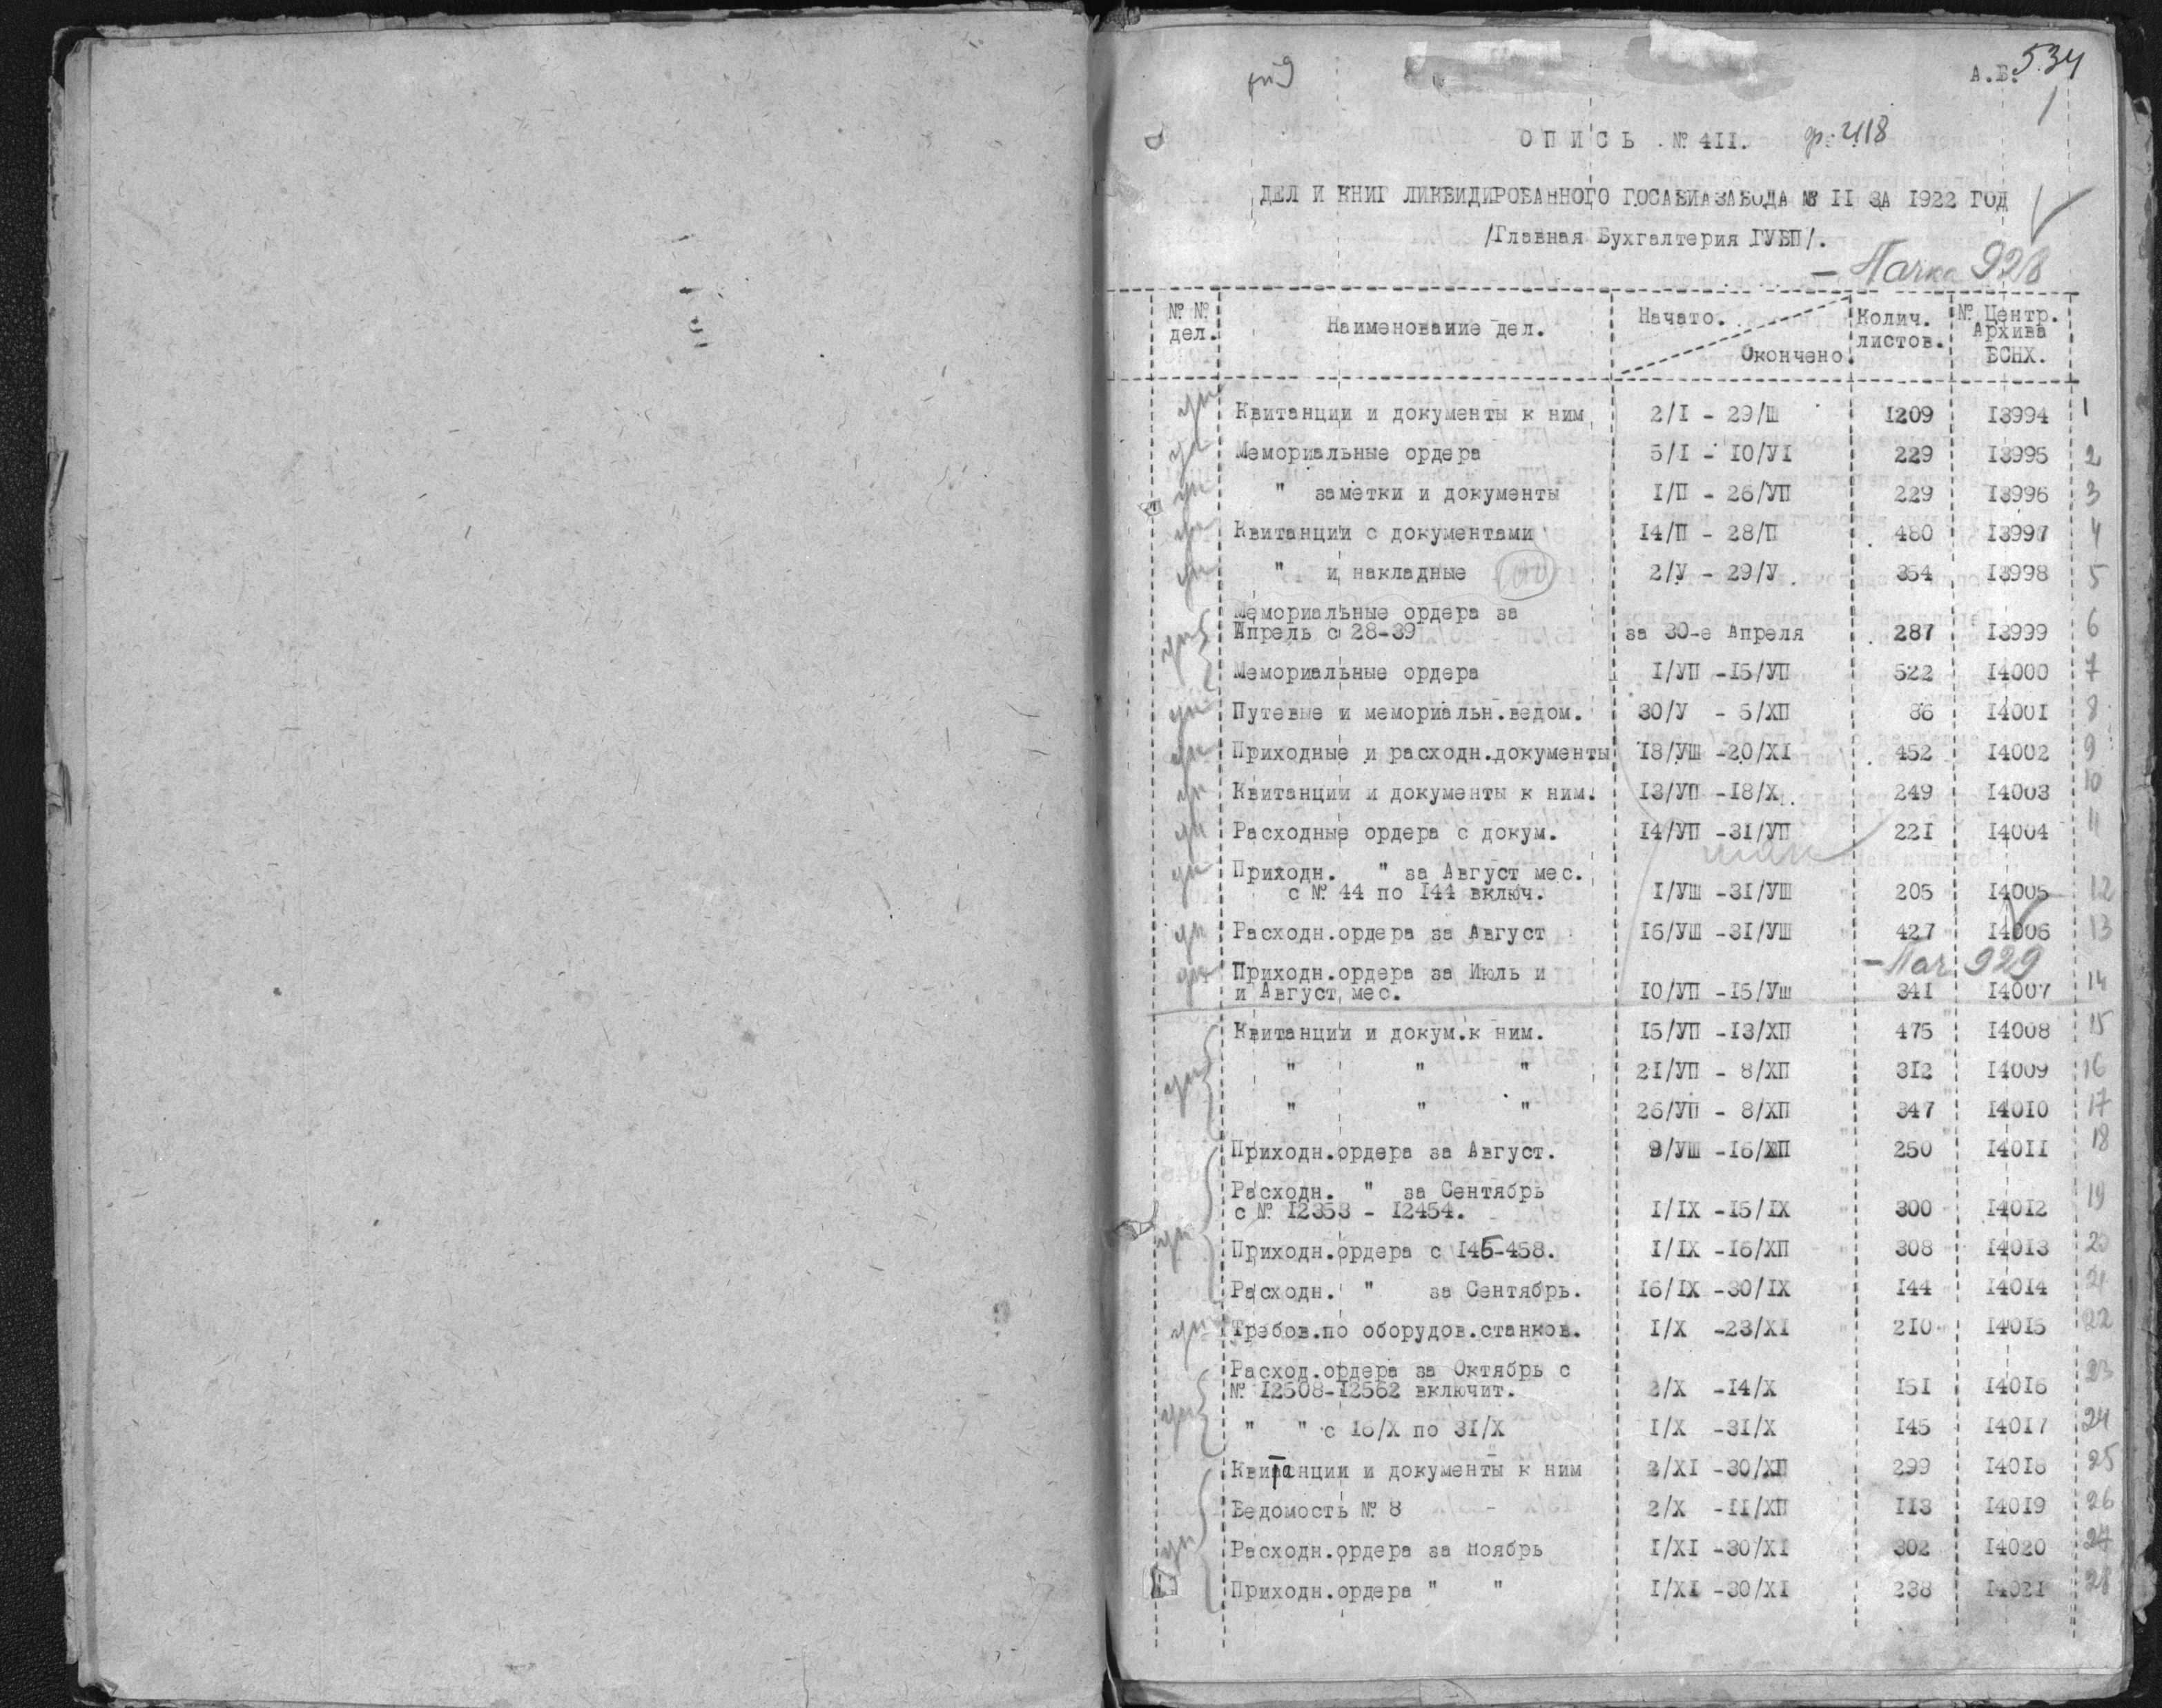 А.Б. 534
1
ОПИСЬ № 4II. ф. 2118
ДЕЛ И КНИГ ЛИКВИДИРОВАННОГО ГОСАВИАЗАВОДА № II ЗА I922 ГОД
/Главная Бухгалтерия ГУВП/.
— Пачка 928
№ № дел. Наименование дел. Начато. Окончено. Колич. листов. № Центр. Архива ВСНХ.
Квитанции и документы к ним 2/I - 29/Ш I209 I3994 1
Мемориальные ордера 5/I - I0/УI 229 I3995 2
" заметки и документы I/П - 26/УП 229 I3996 3
Квитанции с документами I4/П - 28/П 480 I3997 4
" и накладные 2/У - 29/У 354 I3998 5
Мемориальные ордера за
Апрель с 28-39 за 30-е Апреля 287 I3999 6
Мемориальные ордера I/УП -I5/УП 522 I4000 7
Путевые и мемориальн.ведом. 30/У - 5/ХП 86 I400I 8
Приходные и расходн.документы I8/УШ -20/ХI 452 I4002 9
Квитанции и документы к ним. I3/УП -I8/Х 249 I4003 10
Расходные ордера с докум. I4/УП -3I/УП 22I I4004 11
Приходн. " за Август мес.
с № 44 по I44 включ. I/УШ -3I/УШ 205 I4005 12
Расходн.ордера за Август I6/УШ -3I/УШ 427 I4006 13
— Пач 929
Приходн.ордера за Июль и
и Август мес. I0/УП -I5/Уш 34I I4007 14
Квитанции и докум.к ним. I5/УП -I3/ХП 475 I4008 15
" " " 2I/УП - 8/ХП 3I2 I4009 16
" " " 26/УП - 8/ХП 347 I40I0 17
Приходн.ордера за Август. 9/УШ -I6/ХП 250 I40II 18
Расходн. " за Сентябрь
с № I2353 - I2454. I/IХ -I5/IХ 300 I40I2 19
Приходн.ордера с I45-458. I/IХ -I6/ХП 308 I40I3 20
Расходн. " за Сентябрь. I6/IХ -30/IХ I44 I40I4 21
Требов.по оборудов.станков. I/Х -23/ХI 2I0 I40I5 22
Расход.ордера за Октябрь с
№ I2508-I2562 включит. 2/Х -I4/Х I5I I40I6 23
" " с I6/Х по 3I/Х I/Х -3I/Х I45 I40I7 24
Квитанции и документы к ним 2/ХI -30/ХП 299 I40I8 25
Ведомость № 8 - 2/Х -II/ХП II3 I40I9 26
Расходн.ордера за Ноябрь I/ХI -30/ХI 302 I4020 27
Приходн.ордера " " I/ХI -30/ХI 238 I402I 28